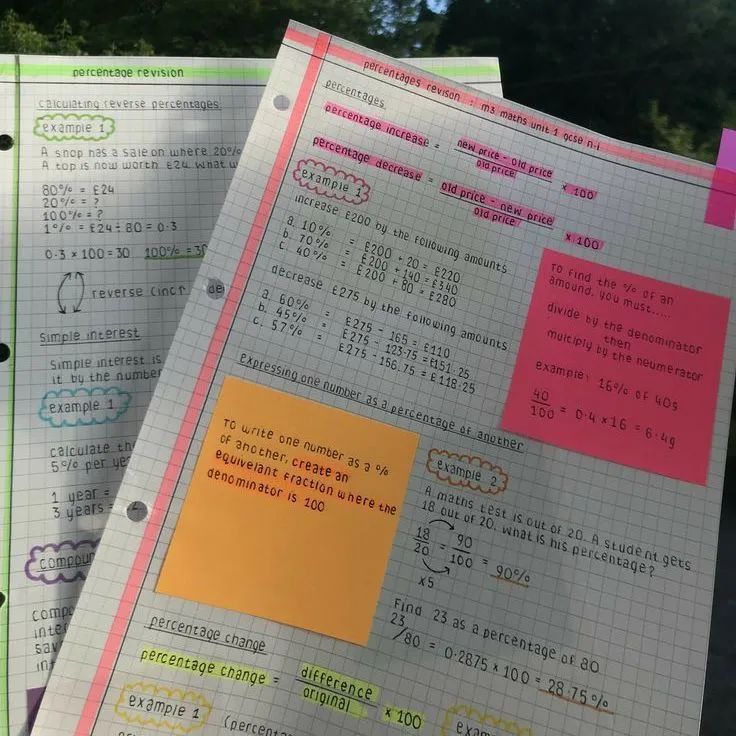 percentage revision
calculating reverse percentages
example 1
A shop has a sale on where 20%
A top is now worth £24. what w
80% = £24
20% = ?
100% = ?
1% = £24 ÷ 80 = 0.3
0.3 × 100 = 30 100% = 30
reverse (incr de
simple interest
simple interest is
it by the number
example 1
calculate th
5% per ye
1 year =
3 years =
compou
compo
inte
sav
in
percentages revison : m3 maths unit 1 gcse n-i
percentages
percentage increase = new price - old price / old price × 100
percentage decrease = old price - new price / old price × 100
example 1
increase £200 by the following amounts
a. 10% = £200 + 20 = £220
b. 70% = £200 + 140 = £340
c. 40% = £200 + 80 = £280
decrease £275 by the following amounts
a. 60% = £275 - 165 = £110
b. 45% = £275 - 123.75 = £151.25
c. 57% = £275 - 156.75 = £118.25
To find the % of an
amound, you must.....
divide by the denominator
then
multiply by the neumerator
example: 16% of 40g
40/100 = 0.4 × 16 = 6.4g
expressing one number as a percentage of another
To write one number as a %
of another, create an
equivelant fraction where the
denominator is 100
example 2
A maths test is out of 20. A student gets
18 out of 20. what is his percentage?
18/20 = 90/100 = 90%
×5
Find 23 as a percentage of 80
23/80 = 0.2875 × 100 = 28.75%
percentage change
percentage change = difference / original × 100
example 1
(percenta
exam